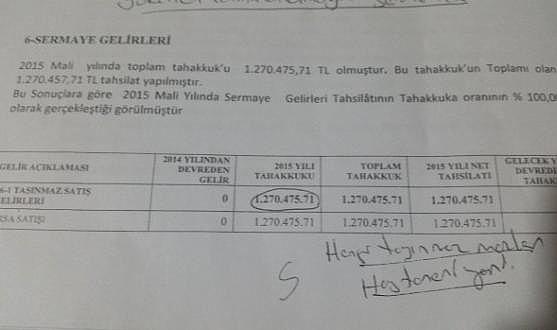 6-SERMAYE GELİRLERİ
2015 Mali yılında toplam tahakkuk'u 1.270.475,71 TL olmuştur. Bu tahakkuk'un Toplamı olan
1.270.457,71 TL tahsilat yapılmıştır.
Bu Sonuçlara göre 2015 Mali Yılında Sermaye Gelirleri Tahsilâtının Tahakkuka oranının % 100,0
olarak gerçekleştiği görülmüştür
GELİR AÇIKLAMASI 2014 YILINDAN DEVREDEN GELİR 2015 YILI TAHAKKUKU TOPLAM TAHAKKUK 2015 YILI NET TAHSİLATI GELECEK Y DEVREDİ TAHAK
6-1 TAŞINMAZ SATIŞ ELİRLERİ 0 1.270.475.71 1.270.475.71 1.270.475.71
RSA SATIŞI 0 1.270.475.71 1.270.475.71 1.270.475.71
Hangi taşınmaz